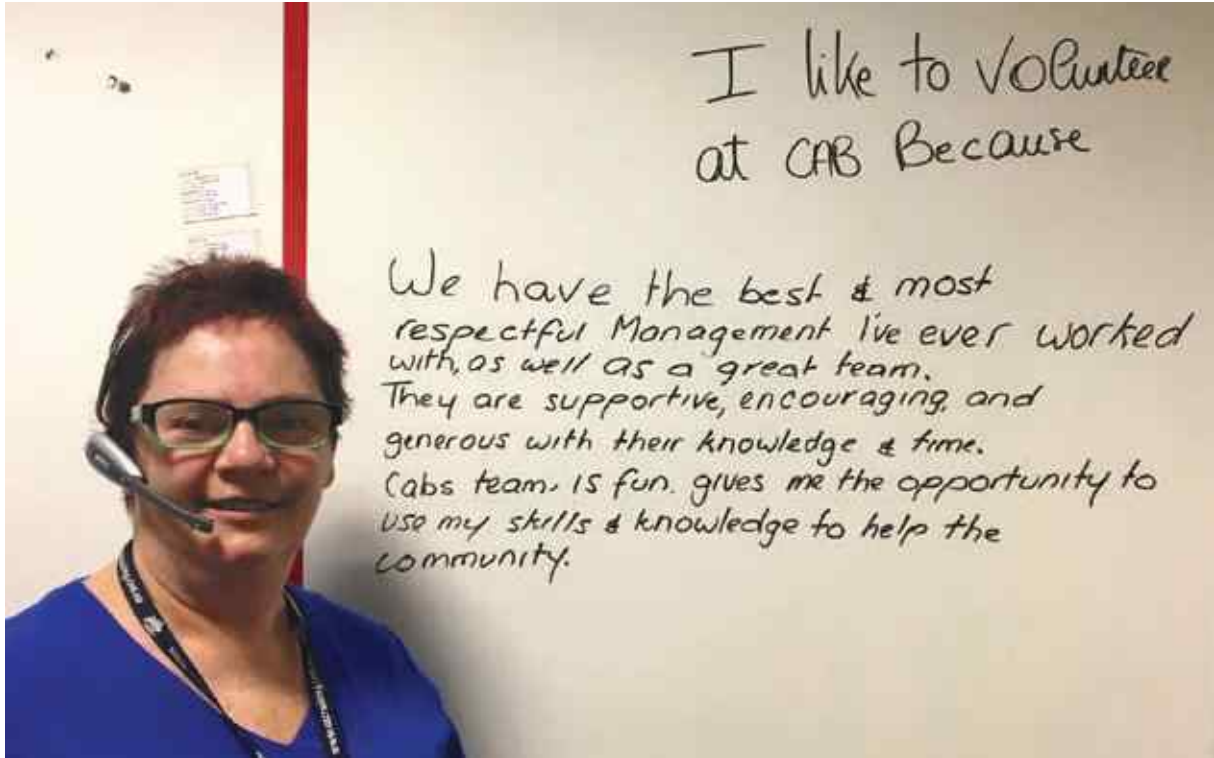 I like to Volunteer
at CAB Because
We have the best & most
respectful Management I've ever worked
with, as well as a great team.
They are supportive, encouraging, and
generous with their knowledge & time.
Cabs team. is fun. gives me the opportunity to
use my skills & knowledge to help the
community.